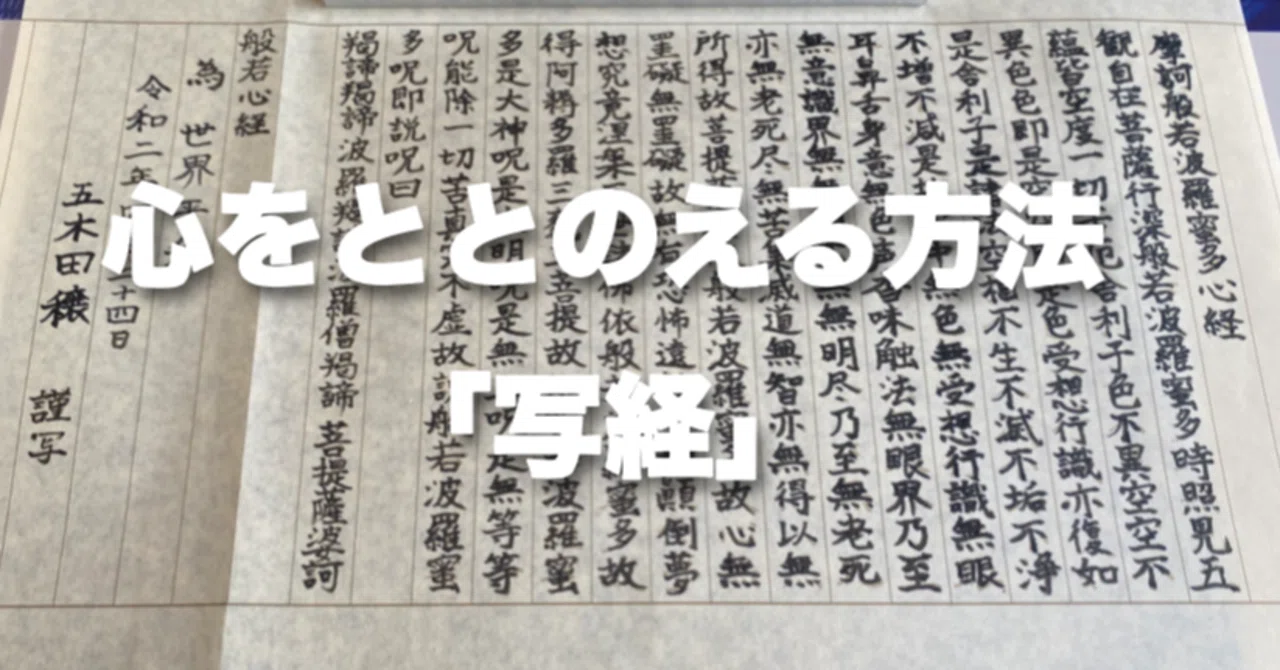 心をととのえる方法
「写経」
摩訶般若波羅蜜多心経
観自在菩薩行深般若波羅蜜多時照見五
蘊皆空度一切厄舎利子色不異空空不
異色色即是空是色受想行識亦復如
是舎利子是諸法空相不生不滅不垢不浄
不増不減是中無色無受想行識無眼
耳鼻舌身意無色声香味触法無眼界乃至
無意識界無無明尽乃至無老死
亦無老死尽無苦集滅道無智亦無得以無
所得故菩提般若波羅蜜故心無
罣礙無罣礙故無有恐怖遠顛倒夢
想究竟涅槃依般蜜多故
得阿耨多羅三菩提故波羅蜜
多是大神呪是明呪是無呪是無等等
呪能除一切苦真不虚故説般若波羅蜜
多呪即説呪曰
羯諦羯諦波羅羯諦波羅僧羯諦 菩提薩婆訶
般若心経
為 世界平
令和二年十四日
五木田穣 謹写